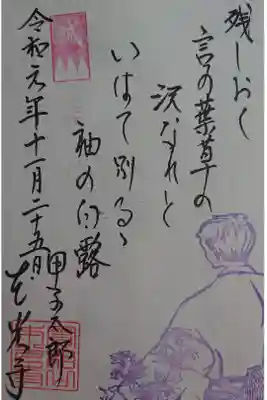 残しおく
言の葉草の
沢なれと
いはて別るゝ
袖の白露
甲子太郎
令和元年十一月二十五日
戒光寺